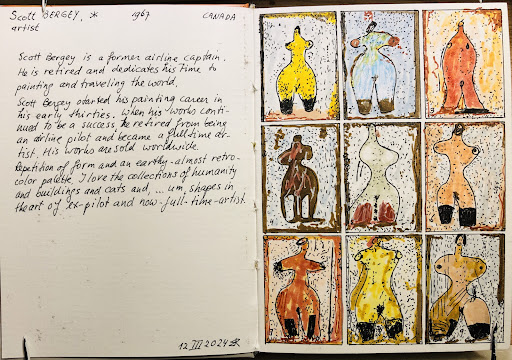 Scott BERGEY, * 1967 CANADA
artist
Scott Bergey is a former airline captain.
He is retired and dedicates his time to
painting and traveling the world.
Scott Bergey started his painting career in
his early thirties. When his works conti-
nued to be a success he retired from being
an airline pilot and became a fulltime ar-
tist. His works are sold worldwide.
Repetition of form and an earthy-almost retro-
color palette. I love the collections of humanity
and buildings and cats and, ... um, shapes in
the art of ex-pilot and now-full-time-artist.
12 III 2024